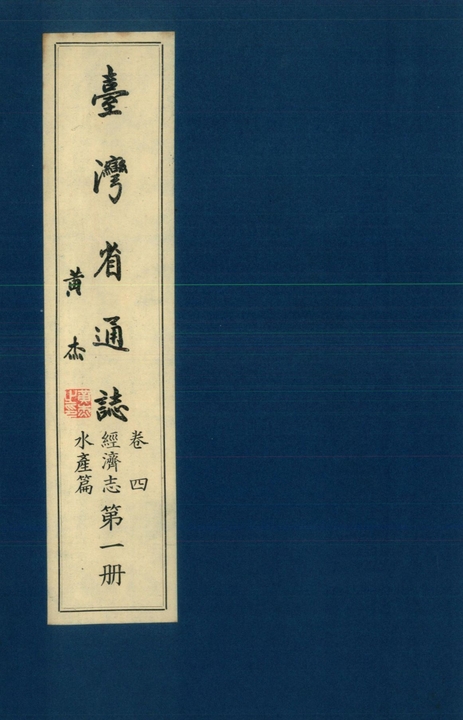 臺灣省通誌
黃杰
卷四
經濟志
水產篇
第一册